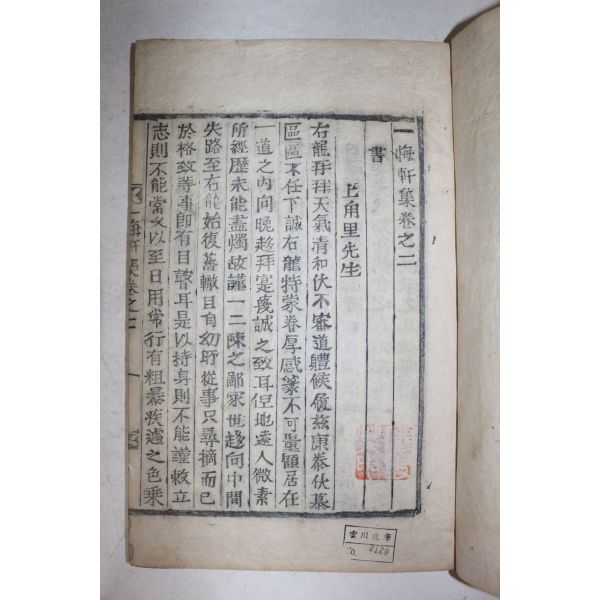 一梅軒集卷之二
書
上角里先生
右龍再拜天氣清和伏不審道軆候履玆康泰伏慕
區區不任下誠右龍特蒙眷厚感篆不可量顧居在
一道之內向晚趍拜寔箋誠之致耳但地遠人微素
所經歷未能盡燭故謹一二陳之鄙家世趍向中間
失路至右龍始復舊轍且自幼時從事只尋摘而已
於格致等事卽有目瞽耳是以持身則不能謹敕立
志則不能當文以至日用常行有粗暴疾遽之色乘
一梅軒集卷之二
一
雲川文庫
No. 2120